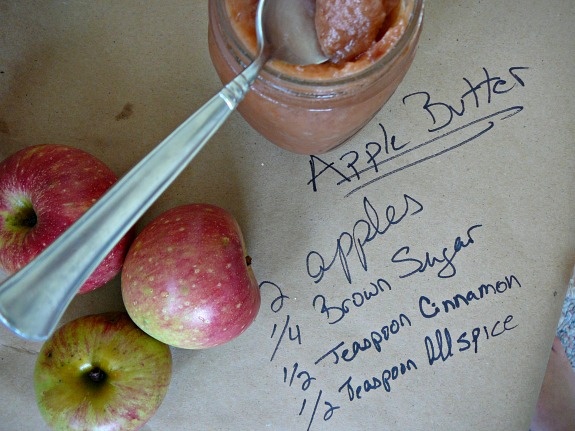 Apple Butter
2 apples
1/4 Brown Sugar
1/2 Teaspoon Cinnamon
1/2 Teaspoon Allspice